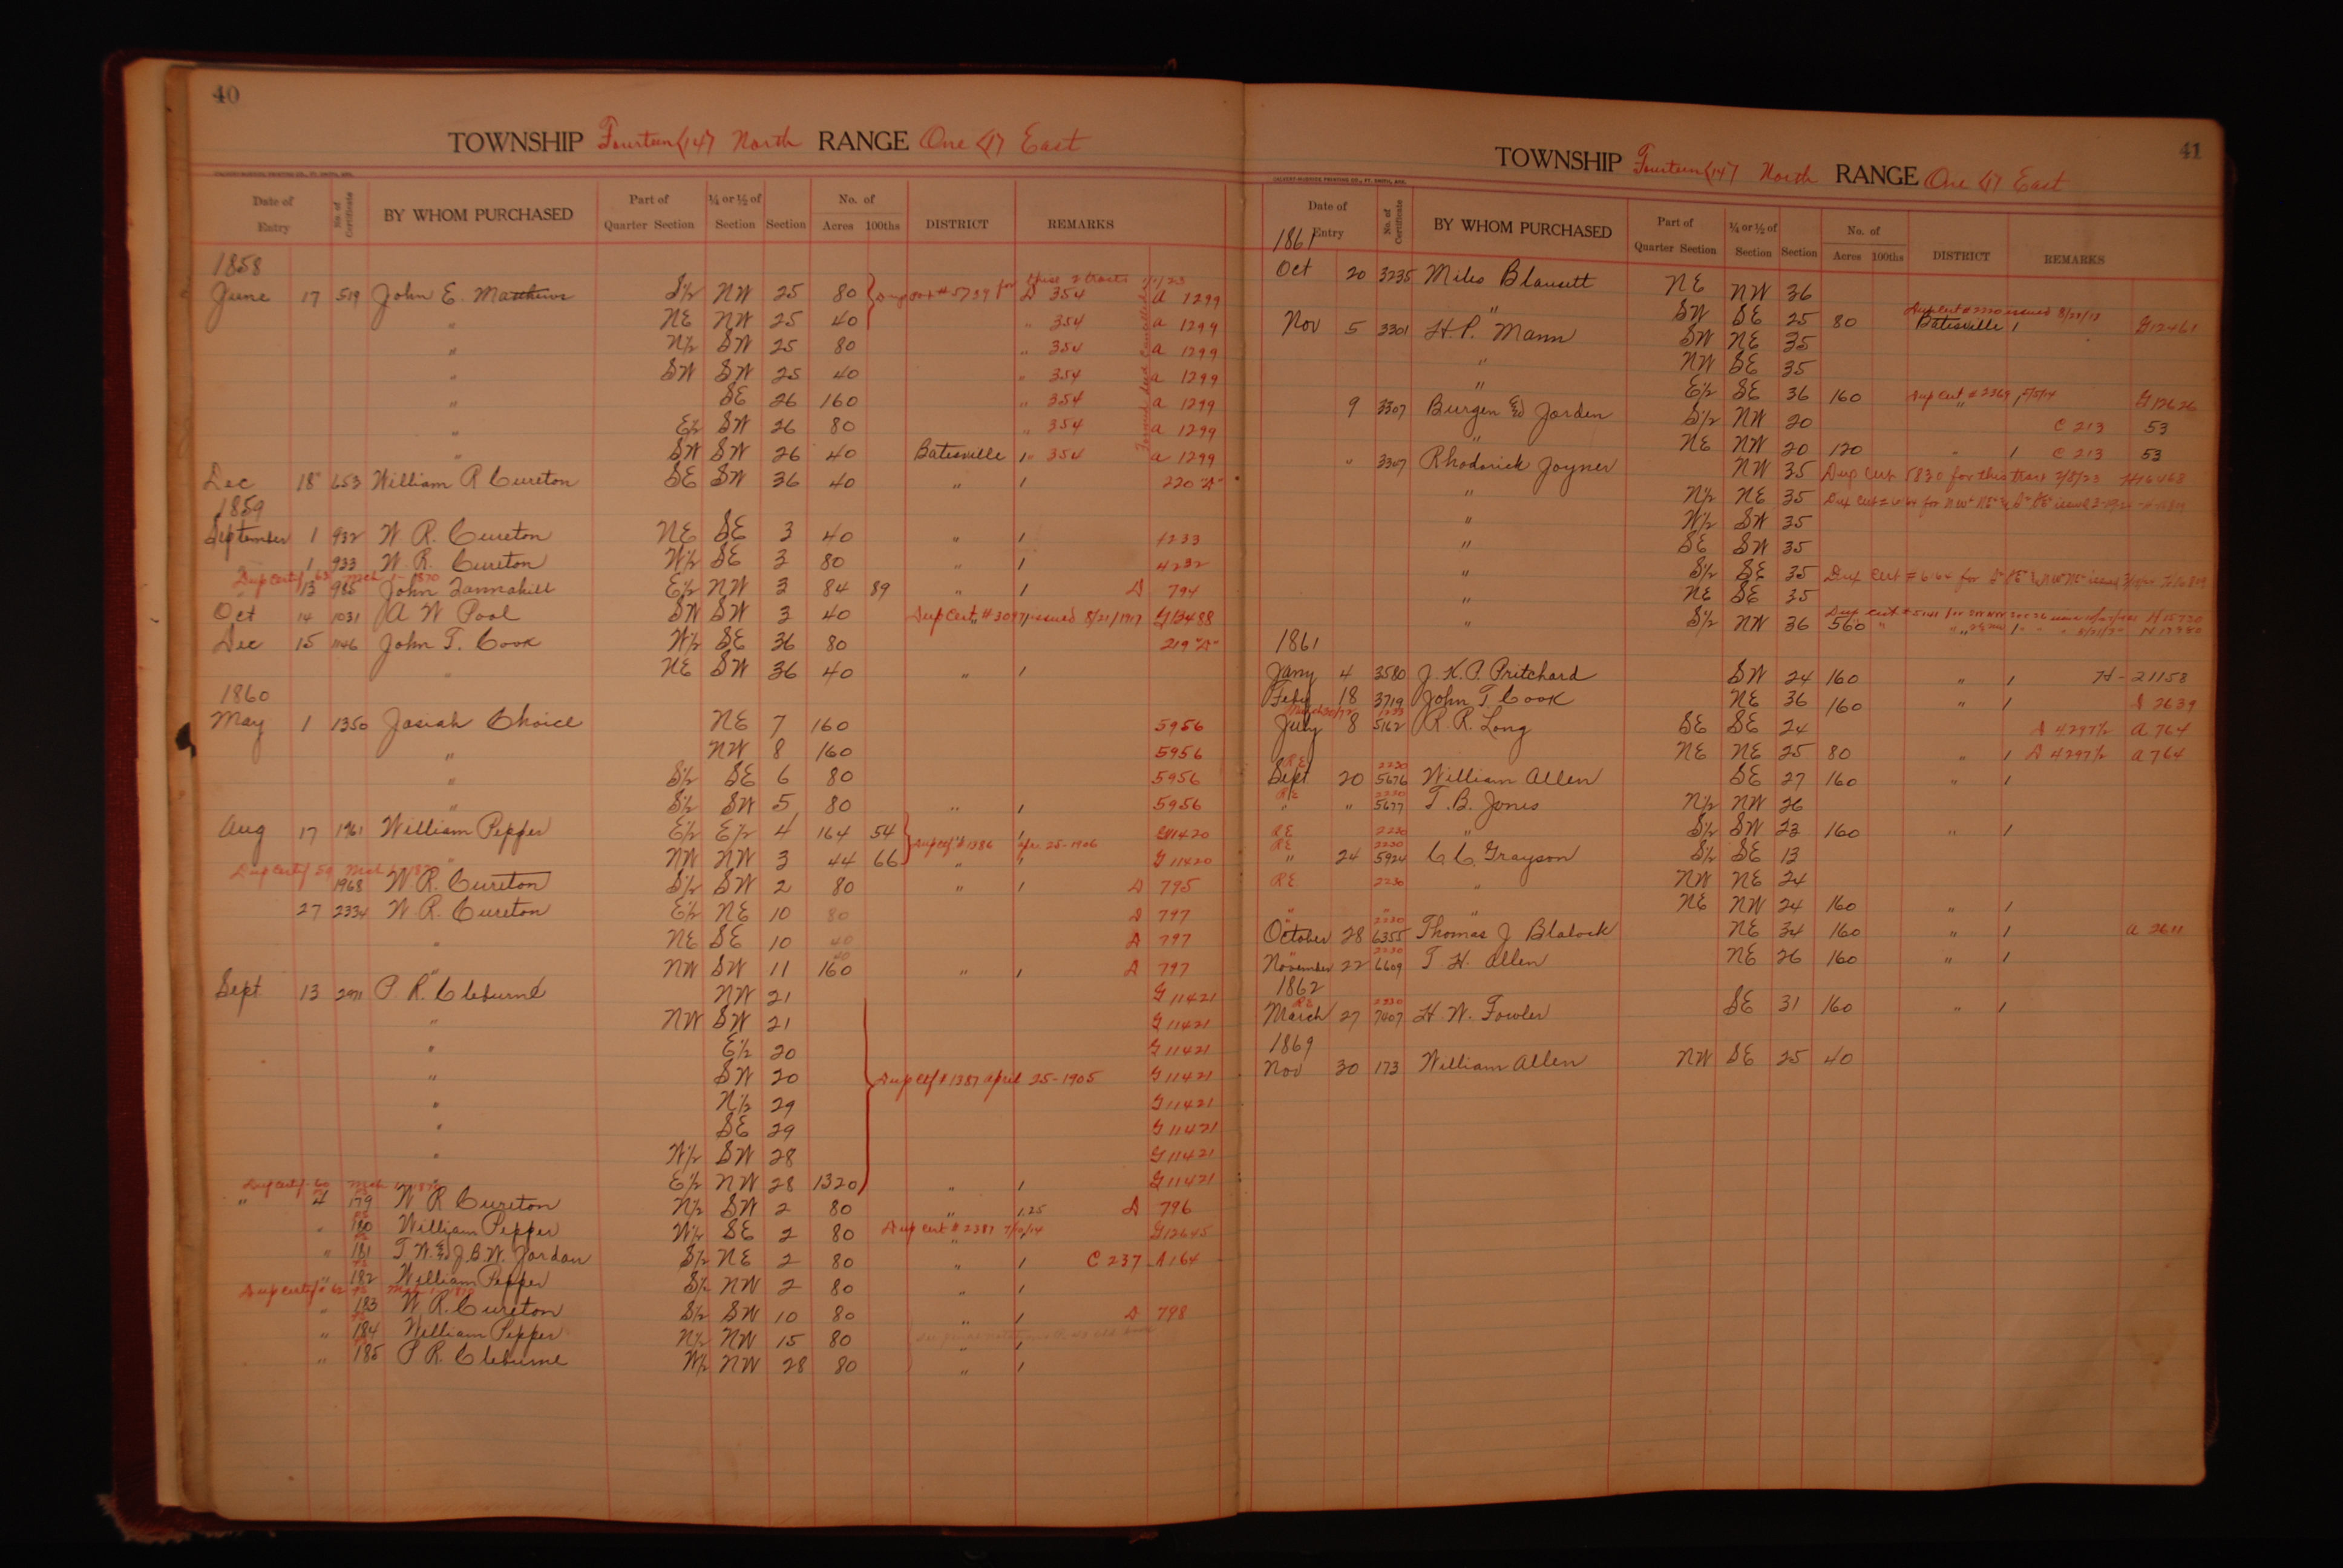 40
TOWNSHIP Fourteen (14) North RANGE One (1) East
Date of Entry No. of Certificate BY WHOM PURCHASED Part of Quarter Section ¼ or ½ of Section Section No. of Acres 100ths DISTRICT REMARKS
1858
June 17 519 John E. Matthews S½ NW 25 80 354 A 1299
" NE NW 25 40 " 354 A 1299
" N½ SW 25 80 " 354 A 1299
" SW SW 25 40 " 354 A 1299
" SE 26 160 " 354 A 1299
" E½ SW 26 80 " 354 A 1299
" SW SW 26 40 Batesville 1 " 354 A 1299
Dec 18 653 William R Cureton SE SW 36 40 " 1 220 "A"
1859
September 1 932 W. R. Cureton NE SE 3 40 " 1 1233
1 933 W. R. Cureton W½ SE 3 80 " 1 4232
Dup Certif 63 Mch 1-1870
13 985 John Tannahill E½ NW 3 84 89 " 1 A 794
Oct 14 1031 A W Pool SW SW 3 40 Dup Cert # 3097 issued 8/21/1917 G13488
Dec 15 1146 John T. Cook W½ SE 36 80 219 "A"
" NE SW 36 40 " 1
1860
May 1 1350 Josiah Choice NE 7 160 5956
" NW 8 160 5956
" S½ SE 6 80 5956
" S½ SW 5 80 " 1 5956
Aug 17 1961 William Pepper E½ E½ 4 164 54 Dup Cef # 1386 Apr. 25-1906 G11420
" NW NW 3 44 66 " 1 G 11420
Dup Certif 59
1968 W. R. Cureton S½ SW 2 80 " 1 A 795
27 2334 W. R. Cureton E½ NE 10 80 A 797
" NE SE 10 40 A 797
" NW SW 11 160 " 1 A 797
Sept 13 2971 P. R. Cleburne NW 21 G 11421
" NW SW 21 G 11421
" E½ 20 G 11421
" SW 20 Dup Cef # 1387 April 25-1905 G 11421
" N½ 29 G 11421
" SE 29 G 11421
" W½ SW 28 G 11421
E½ NW 28 1320 " 1 G 11421
Dup Certif 60
" 179 W R Cureton N½ SW 2 80 " 1.25 A 796
" 180 William Pepper W½ SE 2 80 Dup Cert # 2387 7/10/14 G12645
" 181 T. W. & J. B. W. Jordan S½ NE 2 80 " 1 C 237 A 164
" 182 William Pepper S½ NW 2 80 " 1
Dup Certif # 62
" 183 W. R. Cureton S½ SW 10 80 " 1 A 798
" 184 William Pepper N½ NW 15 80 " 1
" 185 P R. Cleburne W½ NW 28 80 " 1
41
TOWNSHIP Fourteen (14) North RANGE One (1) East
Date of Entry No. of Certificate BY WHOM PURCHASED Part of Quarter Section ¼ or ½ of Section Section No. of Acres 100ths DISTRICT REMARKS
1861
Oct 20 3235 Miles Blansett NE NW 36
" SW SE 25 80 Batesville 1 G12461
Nov 5 3301 H. P. Mann SW NE 35
" NW SE 35
" E½ SE 36 160 Dup Cert # 2369, 5/5/14 G12626
9 3307 Burgen & Jorden S½ NW 20 C 213 53
" NE NW 20 120 " 1 C 213 53
" 3307 Rhoderick Joyner NW 35 Dup Cert 5830 for this tract
" N½ NE 35
" W½ SW 35
" SE SW 35
" S½ SE 35
" NE SE 35
" S½ NW 36 560
1861
Jany 4 3580 J. K. P. Pritchard SW 24 160 " 1 H-21158
Feby 18 3719 John T. Cook NE 36 160 " 1 A 2639
July 8 5162 R R. Long SE SE 24 A 4297½ A 764
NE NE 25 80 " 1 A 4297½ A 764
RE 2230
Sept 20 5676 William Allen SE 27 160 " 1
RE 2230
" " 5677 T. B. Jones N½ NW 26
RE 2230 " S½ SW 23 160 " 1
RE 2230
" 24 5924 C C. Grayson S½ SE 13
RE 2230 " NW NE 24
" " " NE NW 24 160 " 1
" 2230
October 28 6355 Thomas J Blalock NE 34 160 " 1 A 2611
" 2230
November 22 6609 T H. Allen NE 26 160 " 1
1862
RE 2230
March 27 7407 H. W. Fowler SE 31 160 " 1
1869
Nov 30 173 William Allen NW SE 25 40